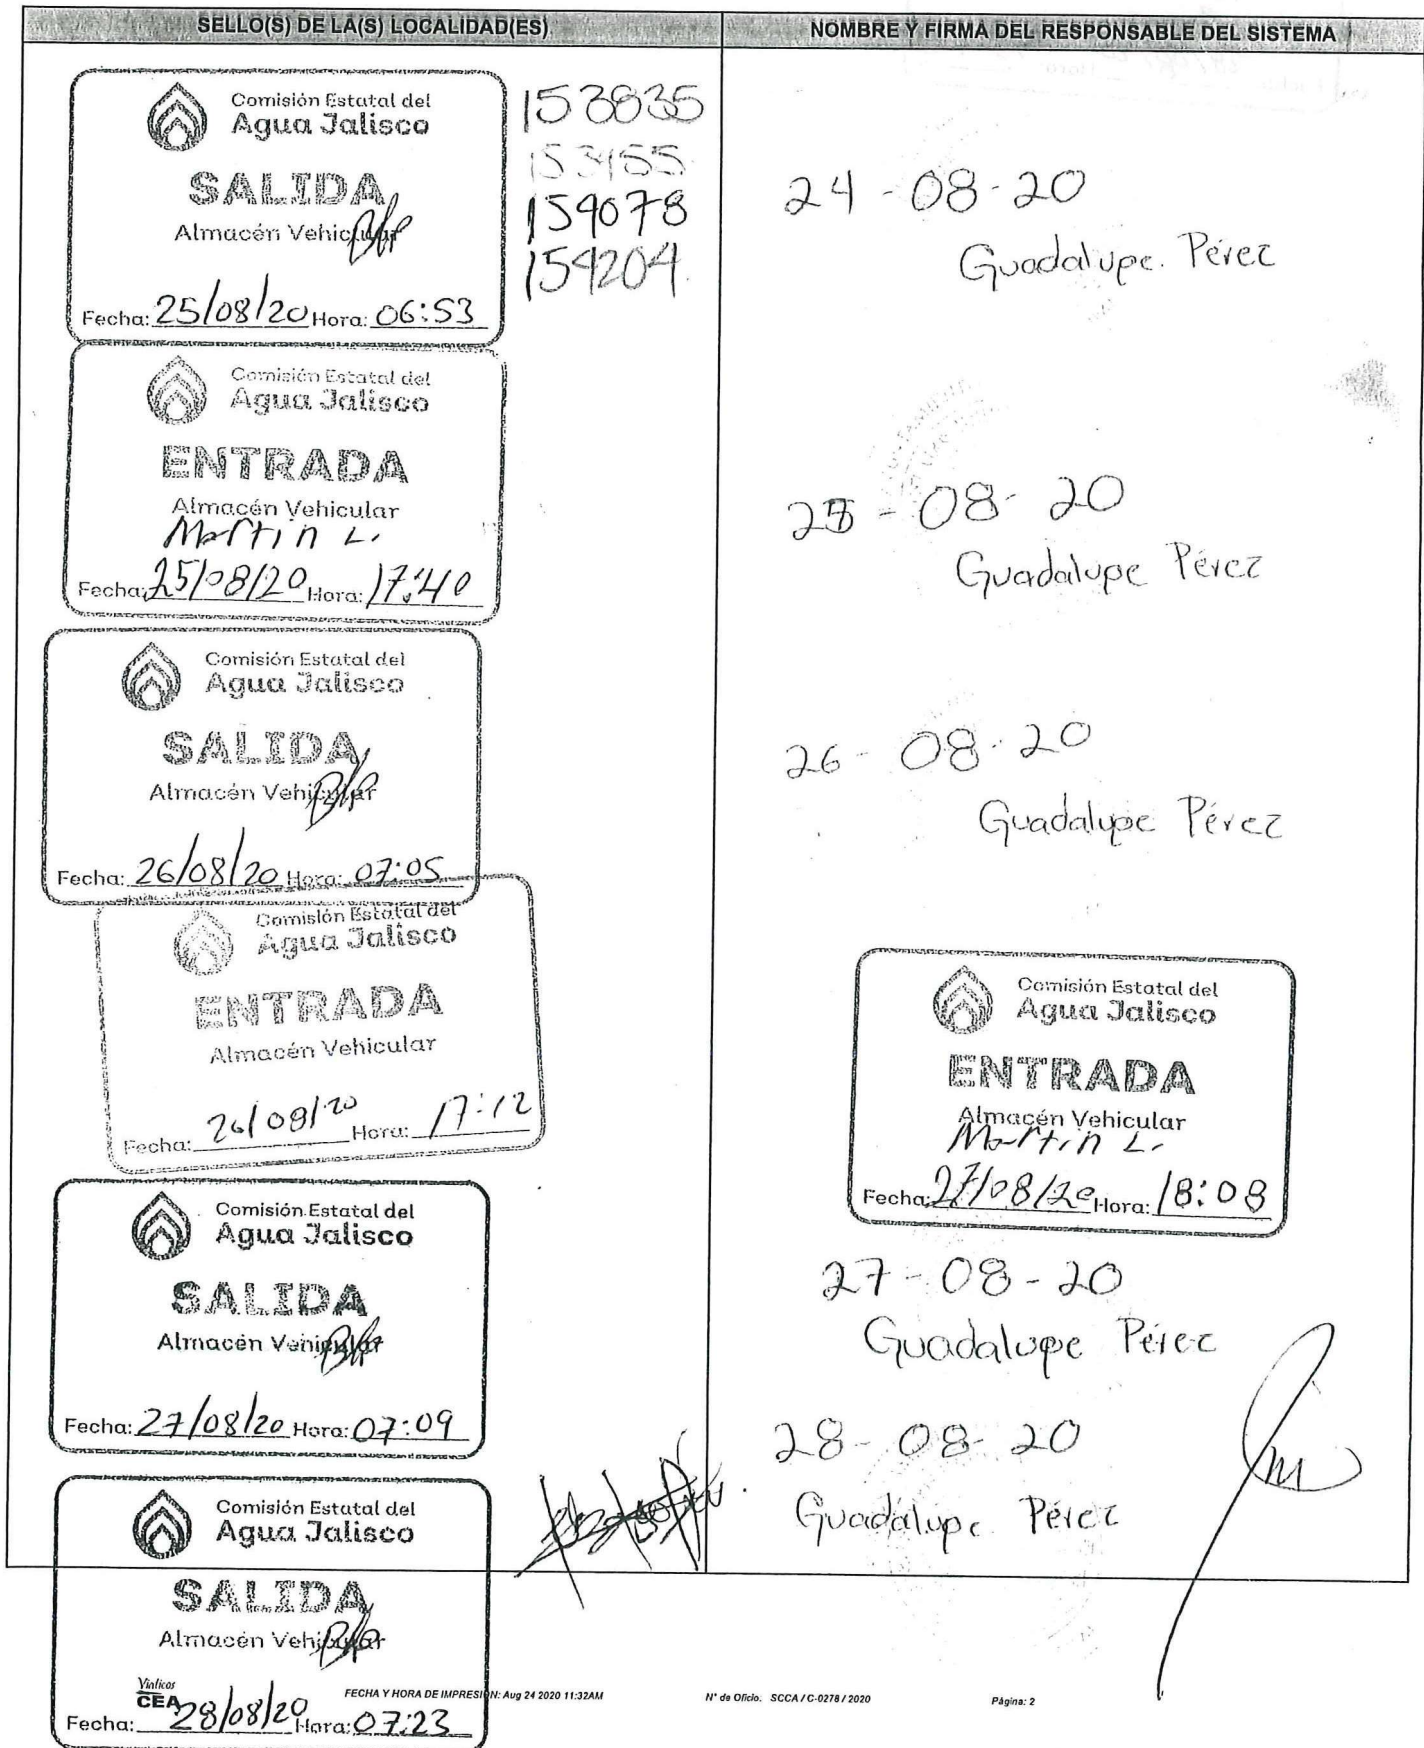 SELLO(S) DE LA(S) LOCALIDAD(ES)
NOMBRE Y FIRMA DEL RESPONSABLE DEL SISTEMA
Comisión Estatal del
Agua Jalisco
SALIDA
Almacén Vehicular
Fecha: 25/08/20 Hora: 06:53
153835
159078
154204
Comisión Estatal del
Agua Jalisco
ENTRADA
Almacén Vehicular
Martin L.
Fecha: 25/08/20 Hora: 17:40
Comisión Estatal del
Agua Jalisco
SALIDA
Almacén Vehicular
Fecha: 26/08/20 Hora: 07:05
Comisión Estatal del
Agua Jalisco
ENTRADA
Almacén Vehicular
Fecha: 26/08/20 Hora: 17:12
Comisión Estatal del
Agua Jalisco
SALIDA
Almacén Vehicular
Fecha: 27/08/20 Hora: 07:09
Comisión Estatal del
Agua Jalisco
SALIDA
Almacén Vehicular
Fecha: 28/08/20 Hora: 07:23
24-08-20
Guadalupe Pérez
25-08-20
Guadalupe Pérez
26-08-20
Guadalupe Pérez
Comisión Estatal del
Agua Jalisco
ENTRADA
Almacén Vehicular
Martin L.
Fecha: 27/08/20 Hora: 18:08
27-08-20
Guadalupe Pérez
28-08-20
Guadalupe Pérez
Viáticos
CEA
FECHA Y HORA DE IMPRESIÓN: Aug 24 2020 11:32AM
N° de Oficio: SCCA / C-0278 / 2020
Página: 2